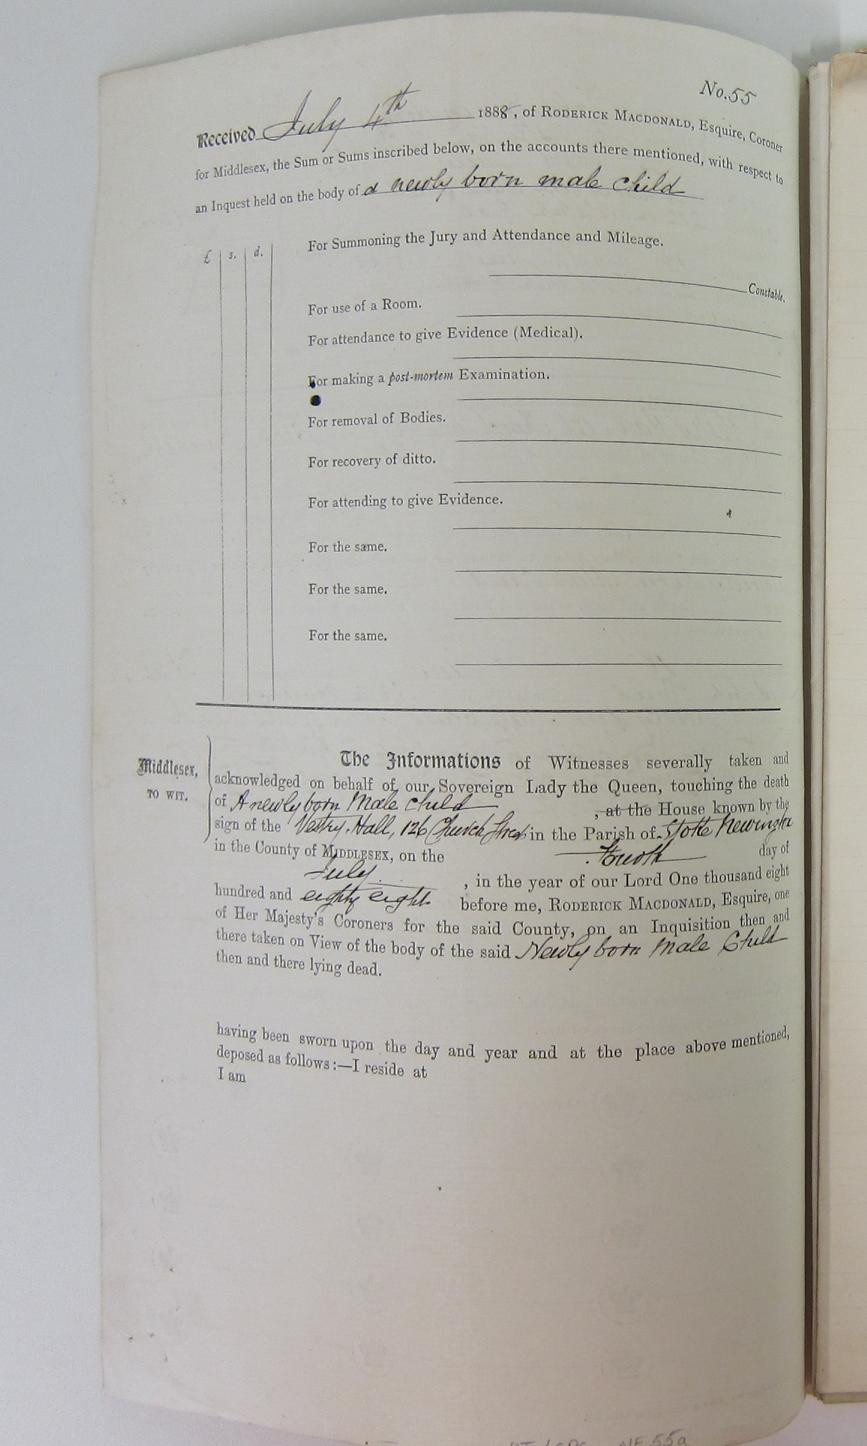 No. 55
Received July 4th 1888, of RODERICK MACDONALD, Esquire, Coroner
for Middlesex, the Sum or Sums inscribed below, on the accounts there mentioned, with respect to
an Inquest held on the body of a newly born male child
£ s. d.
For Summoning the Jury and Attendance and Mileage.
Constable.
For use of a Room.
For attendance to give Evidence (Medical).
For making a post-mortem Examination.
For removal of Bodies.
For recovery of ditto.
For attending to give Evidence.
For the same.
For the same.
For the same.
Middlesex,
TO WIT.
The Informations of Witnesses severally taken and
acknowledged on behalf of our Sovereign Lady the Queen, touching the death
of A newly born Male Child , at the House known by the
sign of the Vestry Hall, 126 Church Street in the Parish of Stoke Newington
in the County of MIDDLESEX, on the Fourth day of
July , in the year of our Lord One thousand eight
hundred and eighty eight before me, RODERICK MACDONALD, Esquire, one
of Her Majesty's Coroners for the said County, on an Inquisition then and
there taken on View of the body of the said Newly born Male Child
then and there lying dead.
having been sworn upon the day and year and at the place above mentioned,
deposed as follows:—I reside at
I am
55a